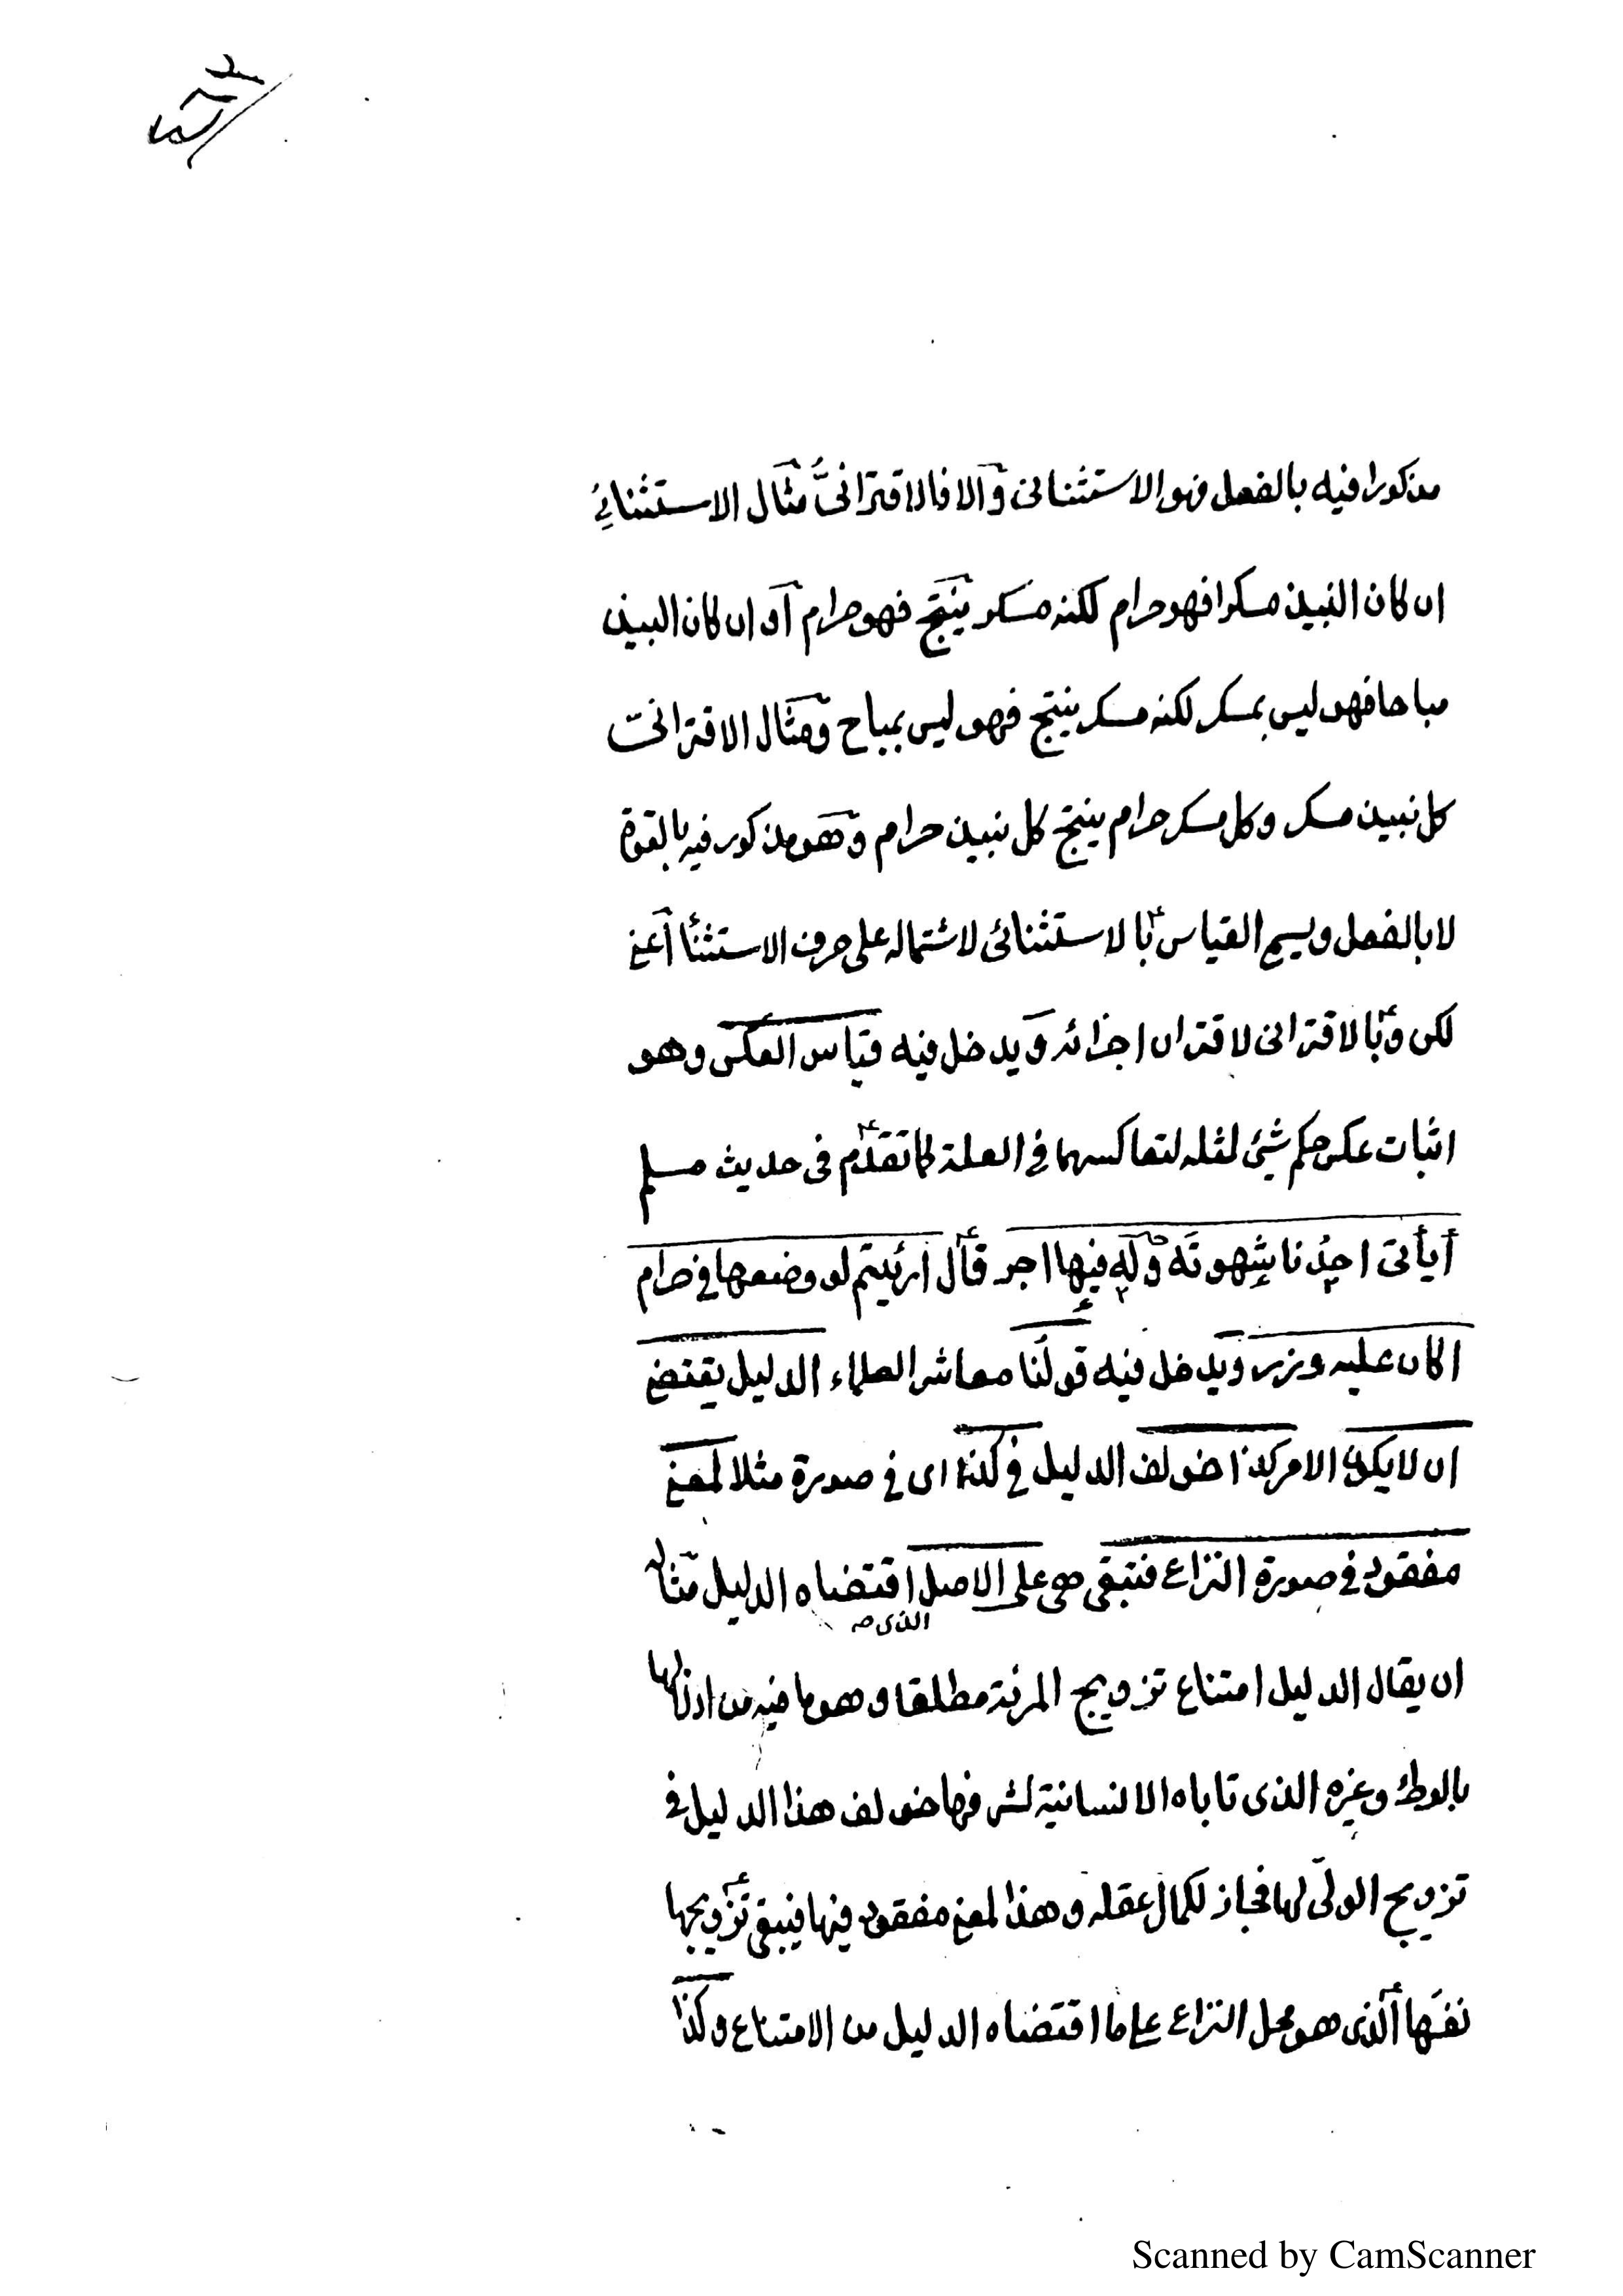 مذكورا فيه بالفعل فهو الاستثنائى وآلا فالاقترانىُّ مثال الاستثنائىُ
ان كان النبيذ مسكرا فهو حرام لكنه مسكر ينتج فهو حرام آو ان كان النبيذ
مباحا فهو ليس بمسكر لكنه مسكر ينتج فهو ليس بمباح ومثال الاقترانى
كل نبيذ مسكر وكل مسكر حرام ينتج كل نبيذ حرام وهو مذكور فيه بالقوة
لا بالفعل ويسمى القياس بالاستثنائى لاشتماله على حرف الاستثنا آعنى
لكن وبالاقترانى لاقتران اجزائه ويدخل فيه قياس العكس وهو
اثبات عكس حكم شئ لمثله لتعاكسهما فى العلة كما تقدّم فى حديث مسلم
أيأتى احدُنا شهوته وله فيها اجر قال ارئيتم لو وضعها فى حرام
اكان عليه وزر ويدخل فيه قولنا معاشر العلماء الدليل يقتضى
ان لا يكون الامر كذا خولف الدليل فى كذا اى فى صورة مثلا لمعنى
مفقود فى صورة النزاع فتبقى هى على الاصل اقتضاه الدليل مثاله
الذى صح
ان يقال الدليل امتناع تزويج المرئة مطلقا وهو ما فيه من اذلالها
بالوطئ وغيره الذى تاباه الانسانية لشرفها خولف هذا الدليل فى
تزويج الولىّ لها فجاز لكمال عقله وهذا لمعنى مفقود فيها فيبقى تزويجها
نفسَها آلذى هو محل النزاع على ما اقتضاه الدليل من الامتناع وكذا
Scanned by CamScanner